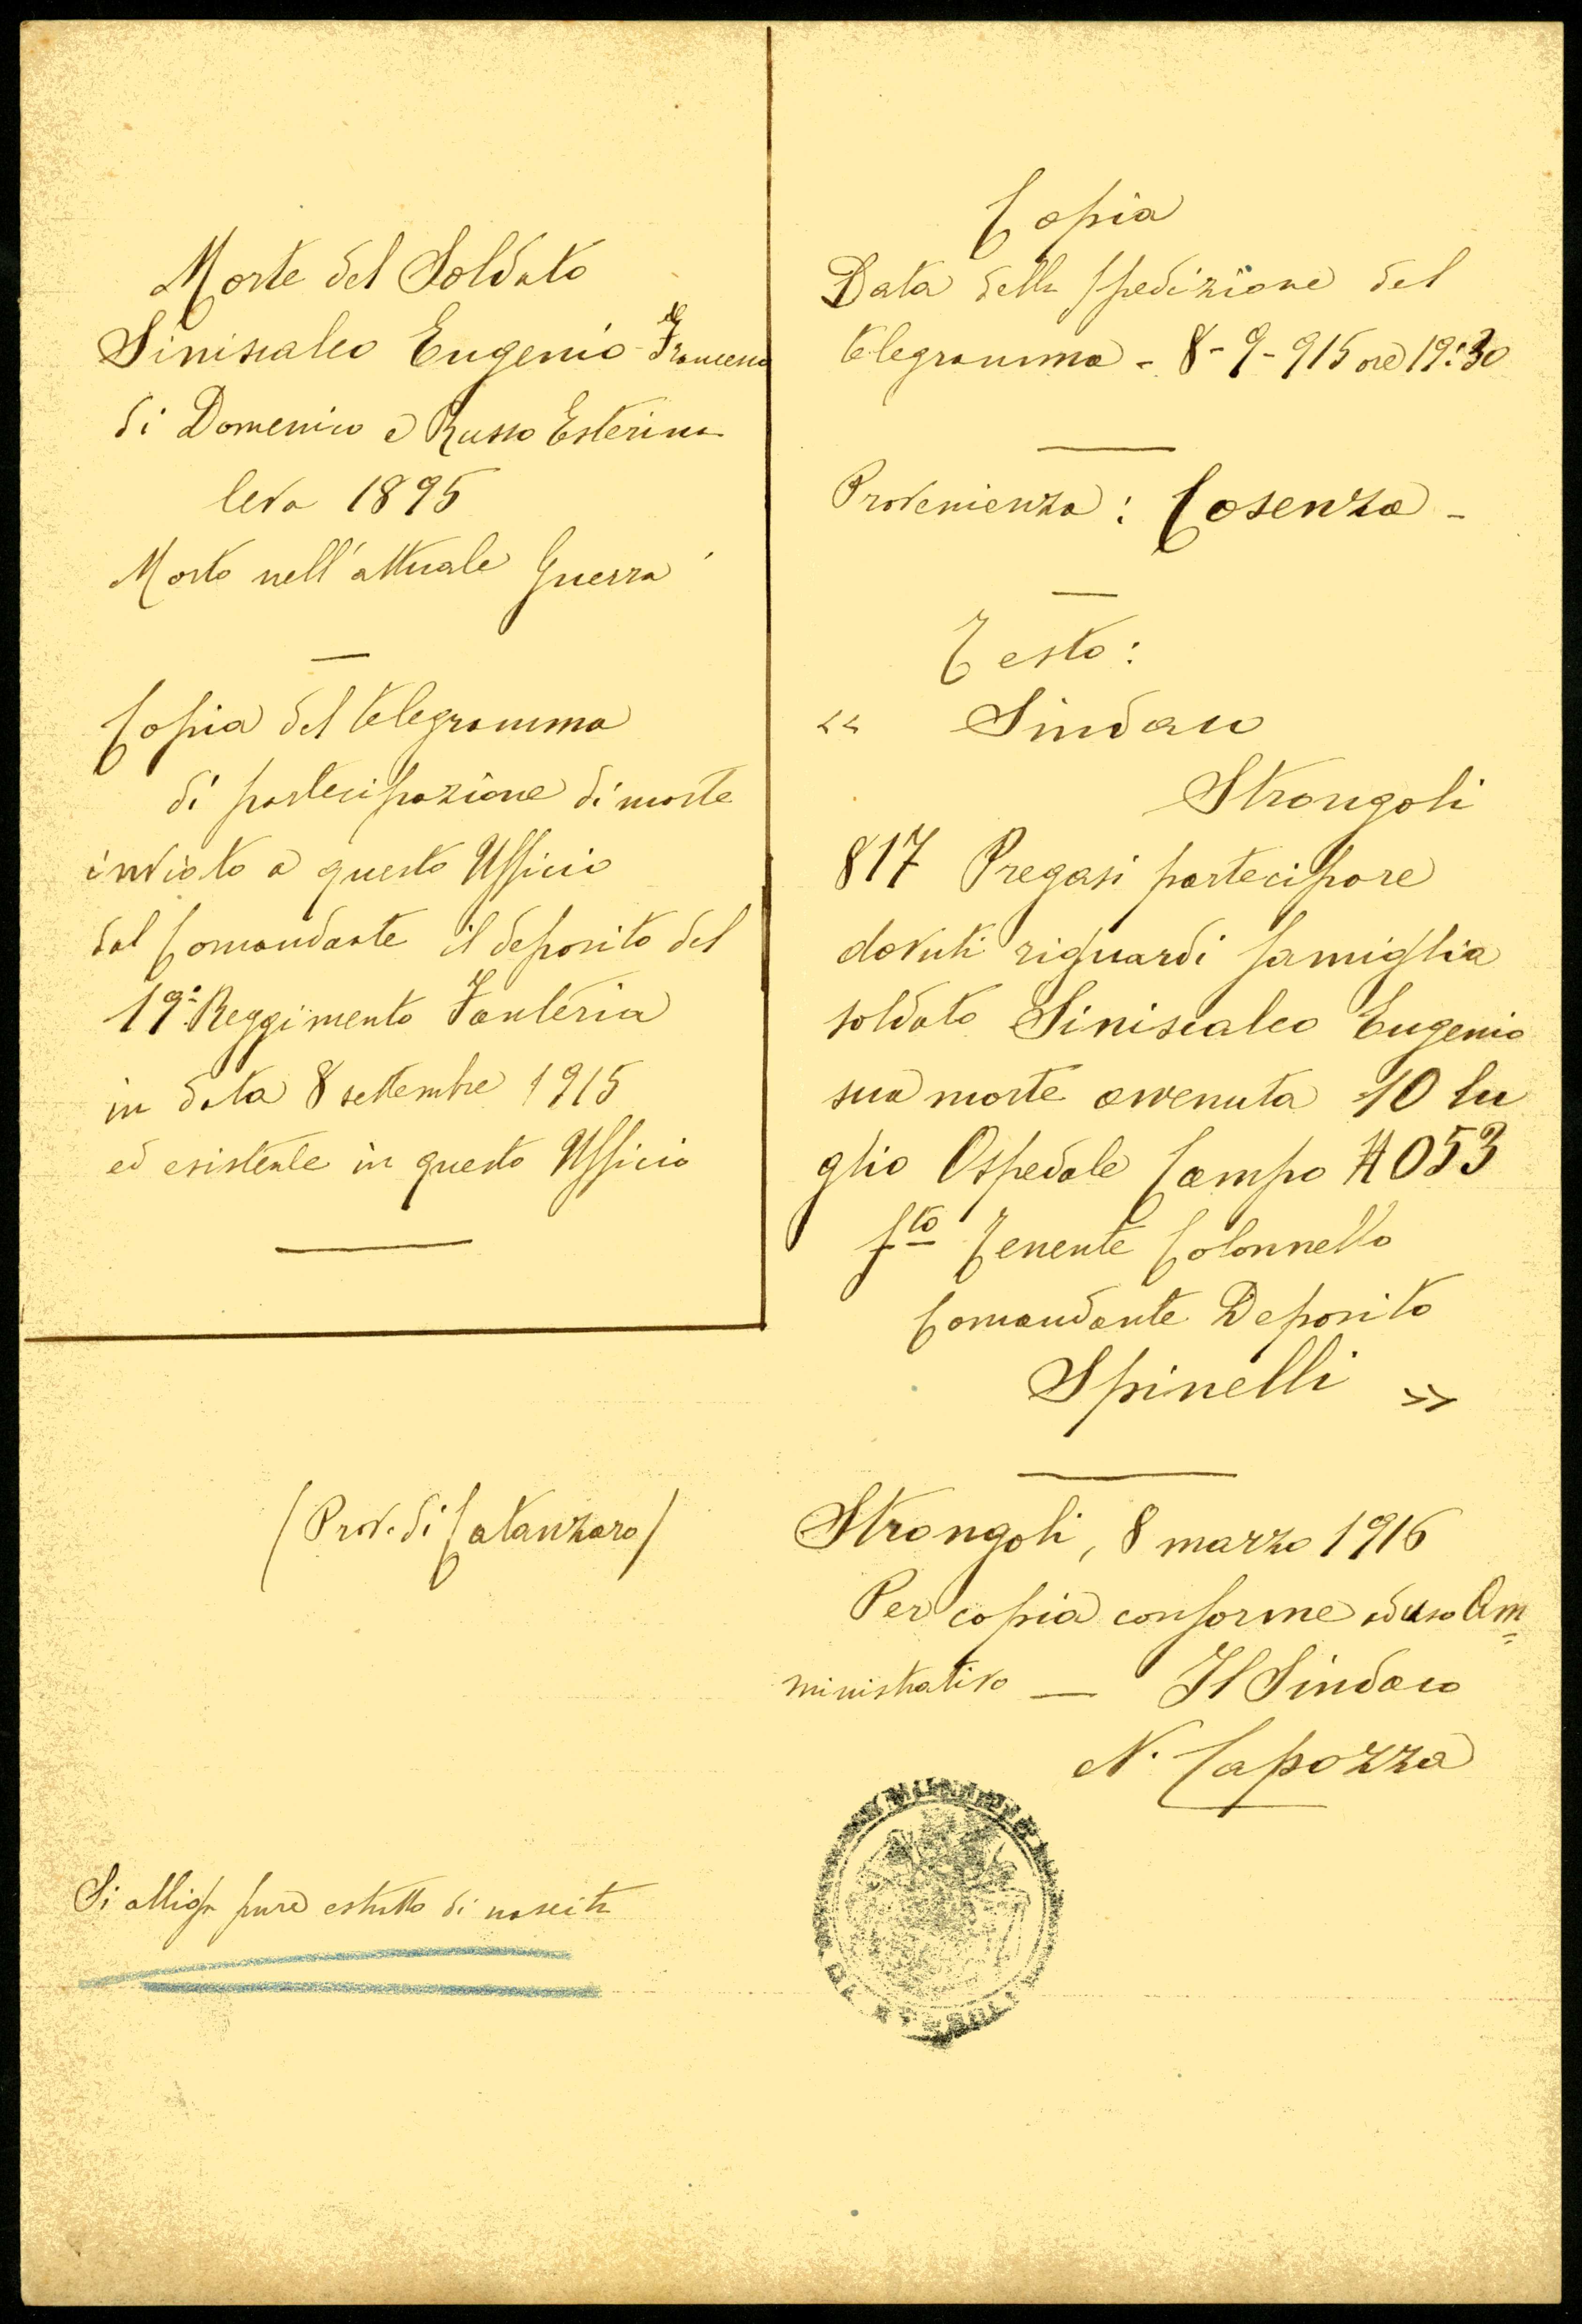 Morte del Soldato
Siniscalco Eugenio-Francesco
di Domenico e Russo Esterina
leva 1895
Morto nell'attuale Guerra
Copia del telegramma
di partecipazione di morte
inviato a questo Ufficio
dal Comandante il deposito del
19° Reggimento Fanteria
in data 8 settembre 1915
ed esistente in questo Ufficio
(Prov. di Catanzaro)
Si alliga pure estratto di nascita
Copia
Data della spedizione del
telegramma - 8-9-915 ore 19:30
Provenienza: Cosenza -
Testo:
« Sindaco
Strongoli
817 Pregasi partecipare
dovuti riguardi famiglia
soldato Siniscalco Eugenio
sua morte avvenuta 10 lu
glio Ospedale Campo 053
fto Tenente Colonnello
Comandante Deposito
Spinelli »
Strongoli, 8 marzo 1916
Per copia conforme ad uso Am=
ministrativo — Il Sindaco
N. Capozza